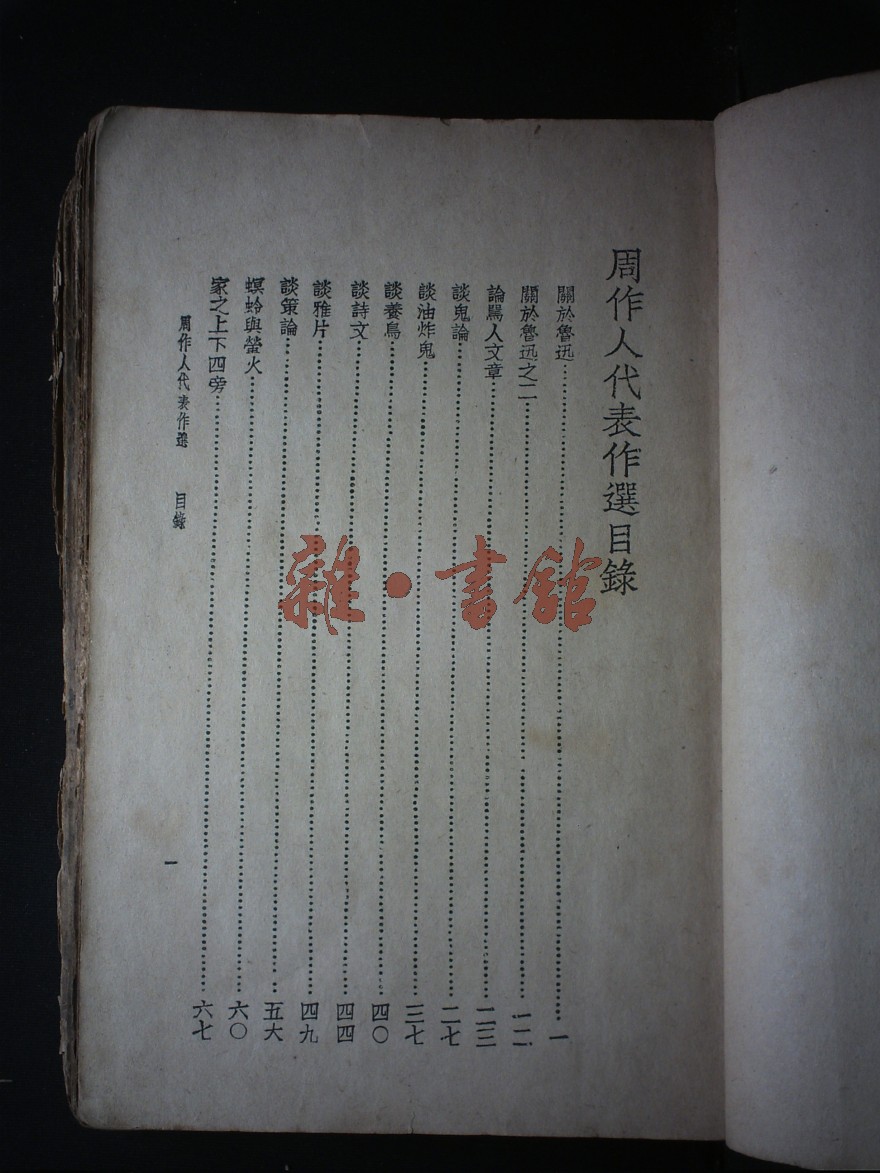 周作人代表作選目錄
關於魯迅……一
關於魯迅之二……一二
論罵人文章……二三
談鬼論……二七
談油炸鬼……三七
談養鳥……四〇
談詩文……四四
談雅片……四九
談策論……五六
螟蛉與螢火……六〇
家之上下四旁……六七
周作人代表作選 目錄
一
雜·書館